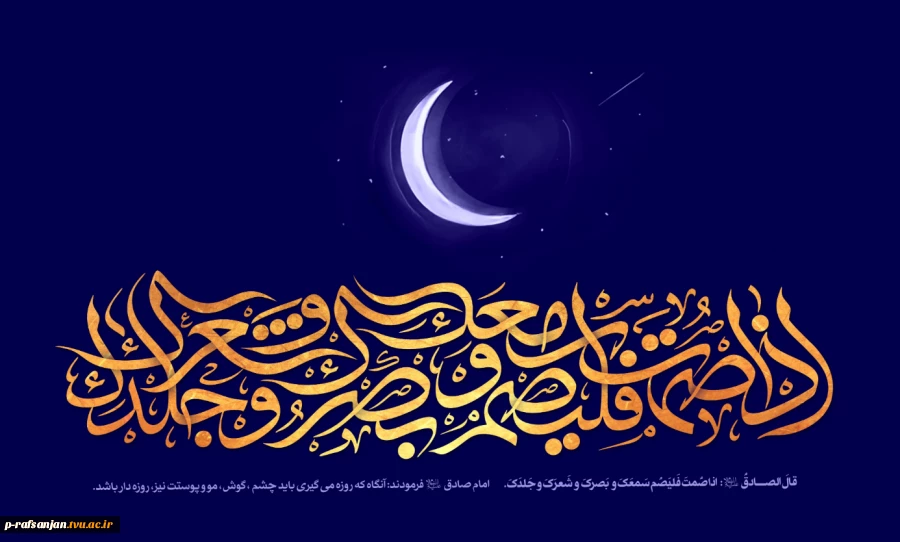 اذا صمت فلیصم سمعک و بصرک و شعرک و جلدک
قالَ الصــادقُ: اذا صُمتَ فَلیَصُم سَمعَکَ وَ بَصرکَ وَ شَعرَکَ وَ جَلدَکَ. امام صادق فرمودند: آنگاه که روزه می گیری باید چشم ، گوش ، مو و پوستت نیز، روزه دار باشد.
p-rafsanjan.tvu.ac.ir